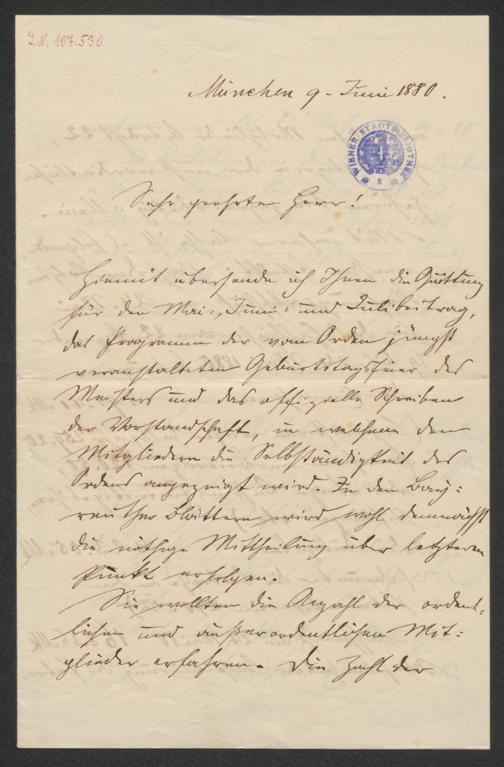 J.N. 107.530
München 9. Juni 1880.
WIENER STADTBIBLIOTHEK
Sehr geehrter Herr!
Hiermit übersende ich Ihnen die Quittung
für den Mai-, Juni- und Julibeitrag,
das Programm der vom Orden jüngst
veranstalteten Geburtstagsfeier des
Meisters und das offizielle Schreiben
der Vorstandschaft, in welchem den
Mitgliedern die Selbständigkeit des
Ordens angezeigt wird. In den Bay-
reuther Blättern wird wohl demnächst
die nöthige Mittheilung über letzteren
Punkt erfolgen.
Sie wollten die Anzahl der ordent-
lichen und außerordentlichen Mit-
glieder erfahren. Die Zahl der